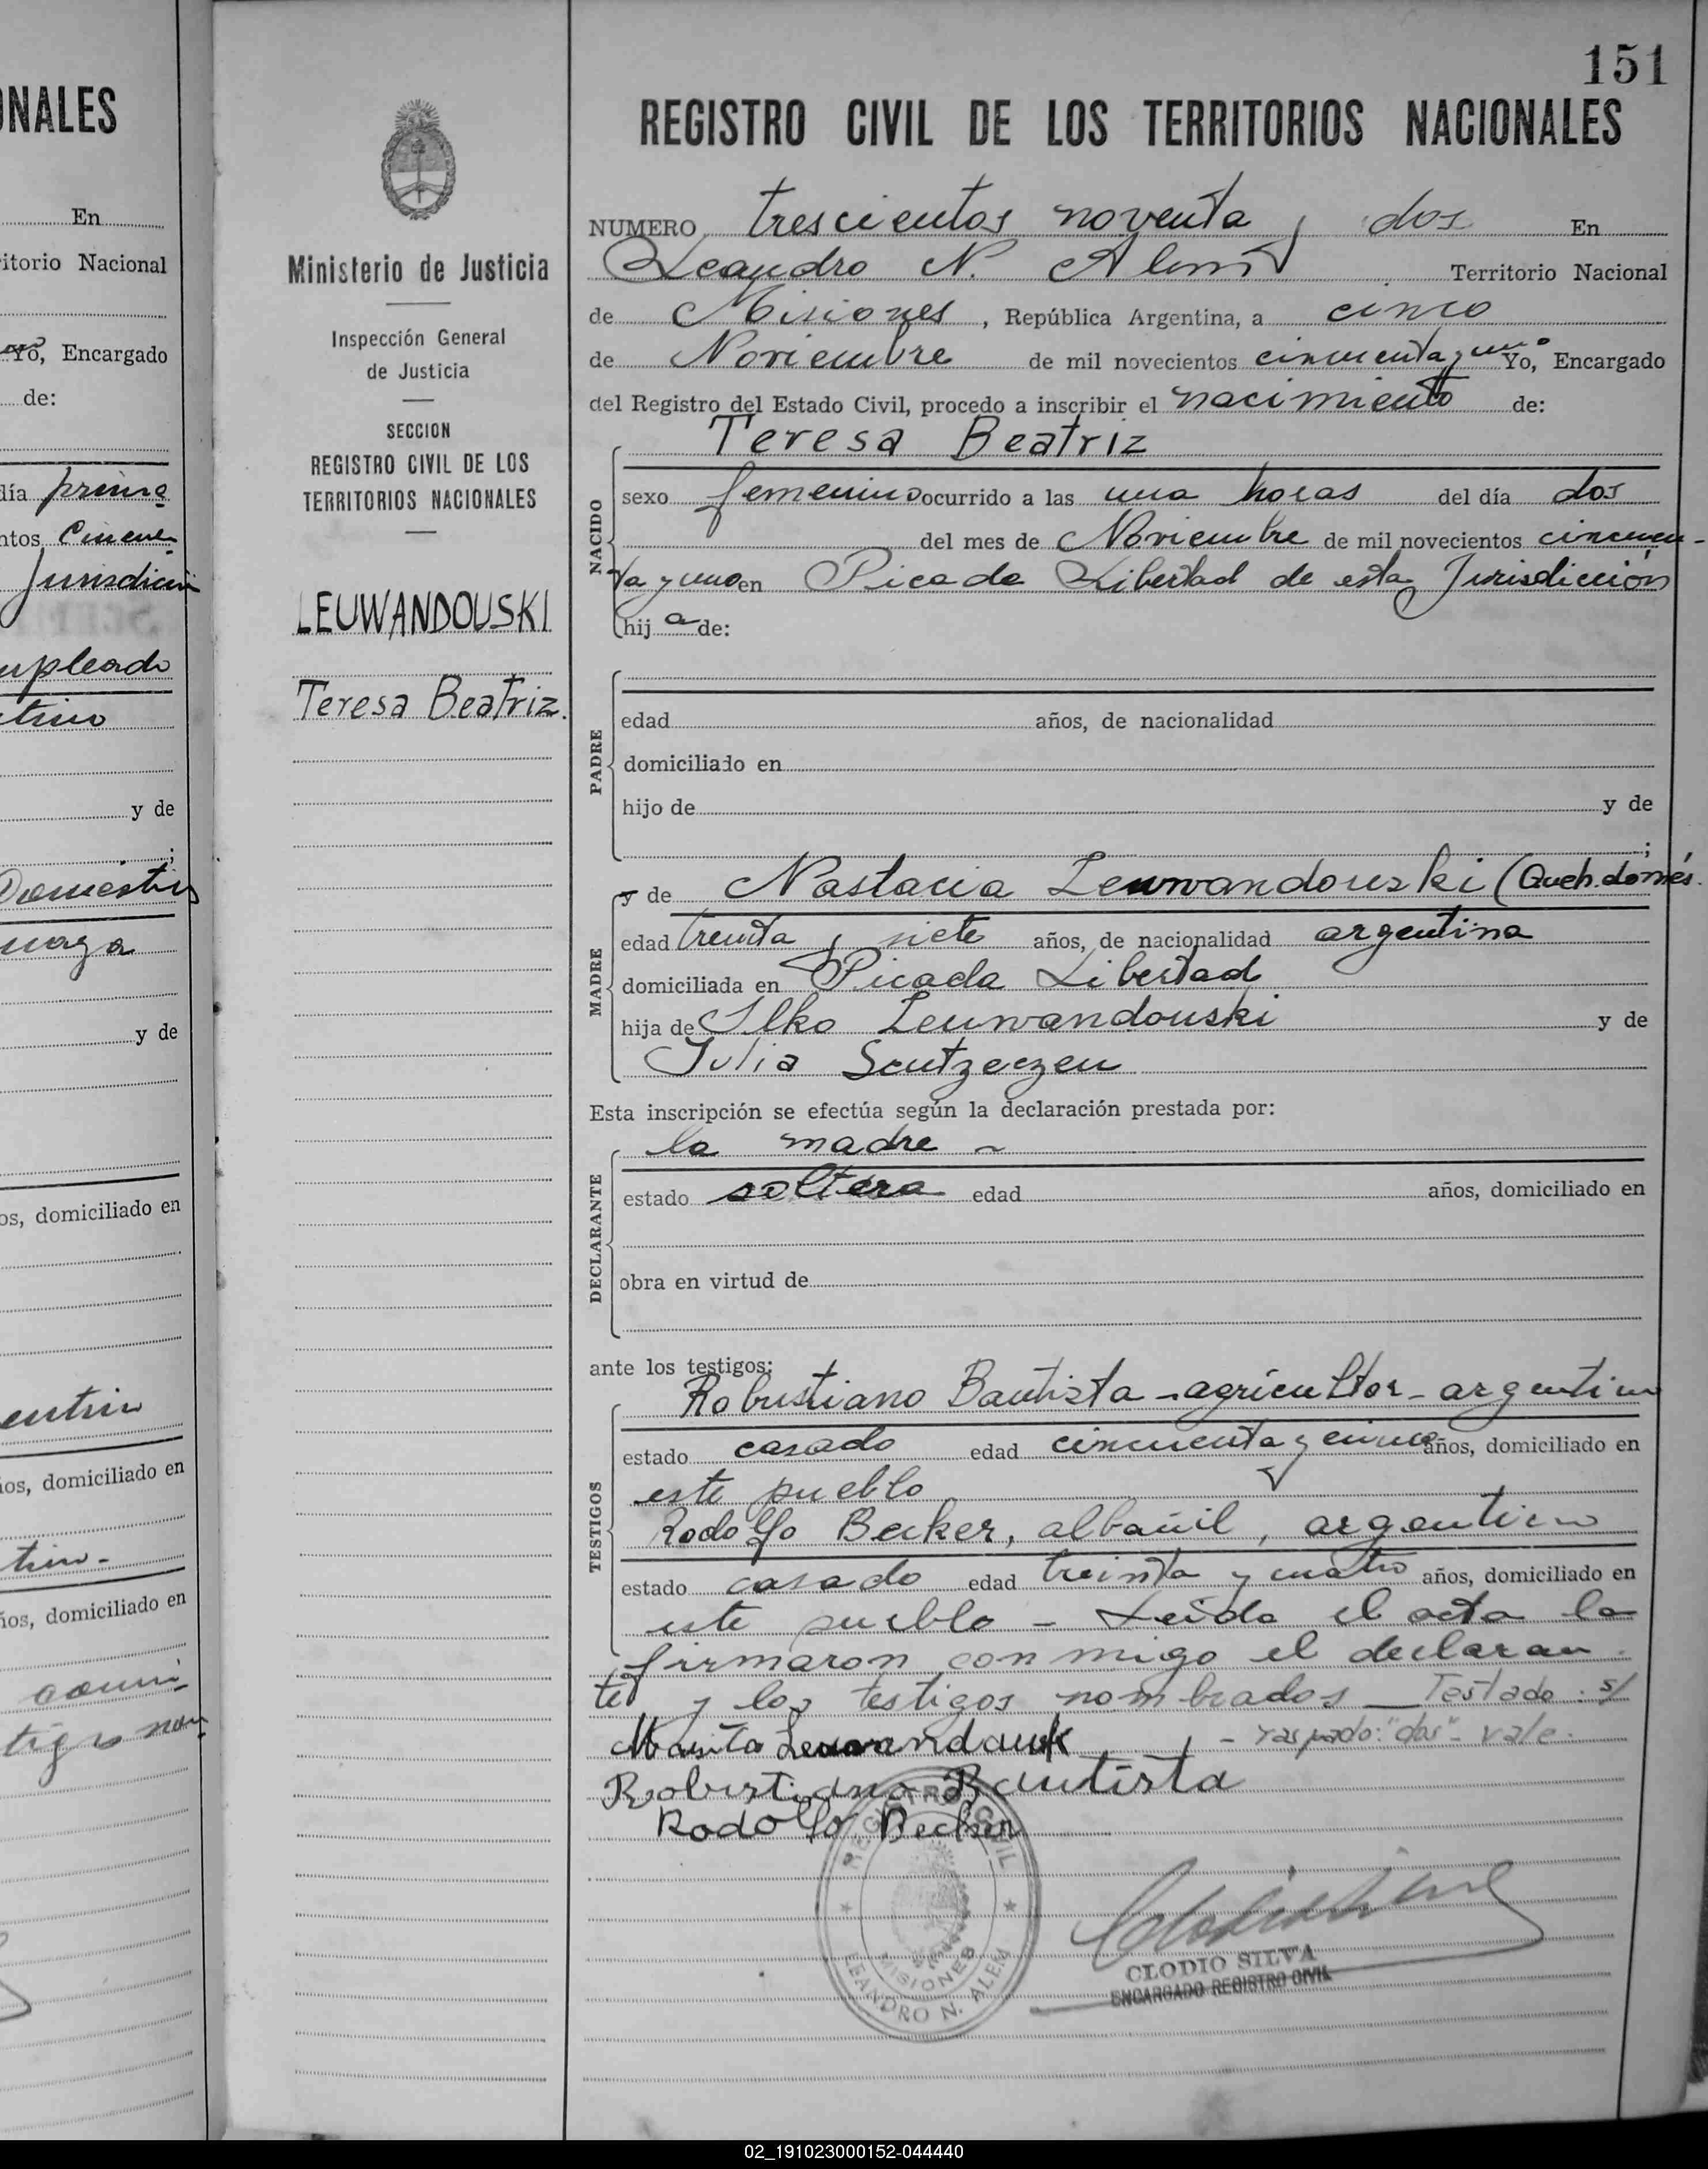 151
REGISTRO CIVIL DE LOS TERRITORIOS NACIONALES
NUMERO trescientos noventa y dos En
Leandro N. Alem Territorio Nacional
de Misiones, República Argentina, a cinco
de Noviembre de mil novecientos cincuenta y uno Yo, Encargado
del Registro del Estado Civil, procedo a inscribir el nacimiento de:
Teresa Beatriz
NACIDO
sexo femenino ocurrido a las una horas del día dos
del mes de Noviembre de mil novecientos cincuen-
ta y uno en Picada Libertad de esta Jurisdicción
hija de:
PADRE
edad años, de nacionalidad
domiciliado en
hijo de y de
;
MADRE
y de Nastacia Leuwandouski (Queh. domés.
edad treinta y siete años, de nacionalidad argentina
domiciliada en Picada Libertad
hija de Ilko Leuwandouski y de
Julia
Esta inscripción se efectúa según la declaración prestada por:
DECLARANTE
la madre
estado soltera edad años, domiciliado en
obra en virtud de
ante los testigos:
TESTIGOS
Robustiano Bautista - agricultor - argentino
estado casado edad cincuenta y cinco años, domiciliado en
este pueblo
Rodolfo Becker, albañil, argentino
estado casado edad treinta y cuatro años, domiciliado en
este pueblo - Leída el acta la
firmaron conmigo el declaran
te y los testigos nombrados — Testado: s/
- raspado: "dos" - vale.
Robustiano Bautista
Rodolfo Becker
REGISTRO CIVIL
MISIONES
LEANDRO N. ALEM
CLODIO SILVA
ENCARGADO REGISTRO CIVIL
Ministerio de Justicia
Inspección General
de Justicia
SECCION
REGISTRO CIVIL DE LOS
TERRITORIOS NACIONALES
LEUWANDOUSKI
Teresa Beatriz.
ONALES
En
itorio Nacional
Yo, Encargado
de:
día prime
ntos Cincuen
Jurisdicción
mpleado
tino
y de
;
Domestic
y de
os, domiciliado en
entin
ios, domiciliado en
tino-
ños, domiciliado en
conmi
02_191023000152-044440